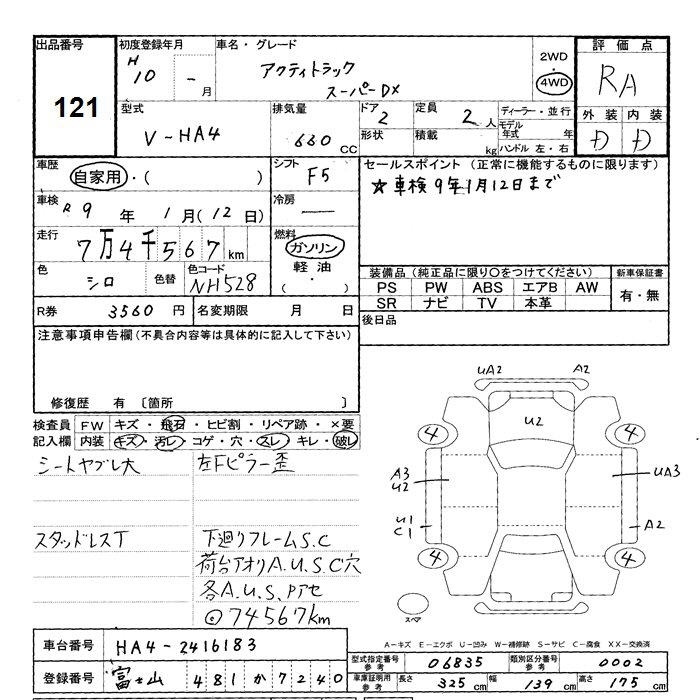 出品番号 初度登録年月 車名・グレード 2WD 評価点
121 H 10 - 月 アクティトラック スーパーDX ・ 4WD RA
型式 排気量 ドア 定員 ディーラー・並行 外装 内装
V-HA4 660 CC 2 2 人 モデル年式 年 D D
形状 積載 kg ハンドル 左・右
車歴 シフト セールスポイント (正常に機能するものに限ります)
自家用・( ) F5 ☆車検9年1月12日まで
車検 R9 年 1月(12日) 冷房 —
走行 燃料
7万4千567km ガソリン
色 色替 色コード 軽油 装備品 (純正品に限り○をつけてください) 新車保証書
シロ NH528 ( ・ ) PS PW ABS エアB AW 有・無
SR ナビ TV 本革
R券 3560 円 名変期限 月 日 後日品
注意事項申告欄 (不具合内容等は具体的に記入して下さい)
修復歴 有 〔箇所 〕
検査員 FW キズ・飛石・ヒビ割・リペア跡・×要
記入欄 内装 キズ・汚レ・コゲ・穴・スレ・キレ・破レ
シートヤブレ大 左Fピラー歪
スタッドレスT 下廻りフレームS.C
荷台アオリA.U.S.C穴
各A.U.S.Pアセ
◎74567km
UA2 A2
U2
4 4
A3 U2 UA3
U1 C1 A2
4 4
スペア
A-キズ E-エクボ U-凹み W-補修跡 S-サビ C-腐食 XX-交換済
車台番号 HA4-2416183 型式指定番号 参考 06835 類別区分番号 参考 0002
登録番号 富士山 481か7240 車庫証明用 参考 長さ 325cm 幅 139cm 高さ 175cm